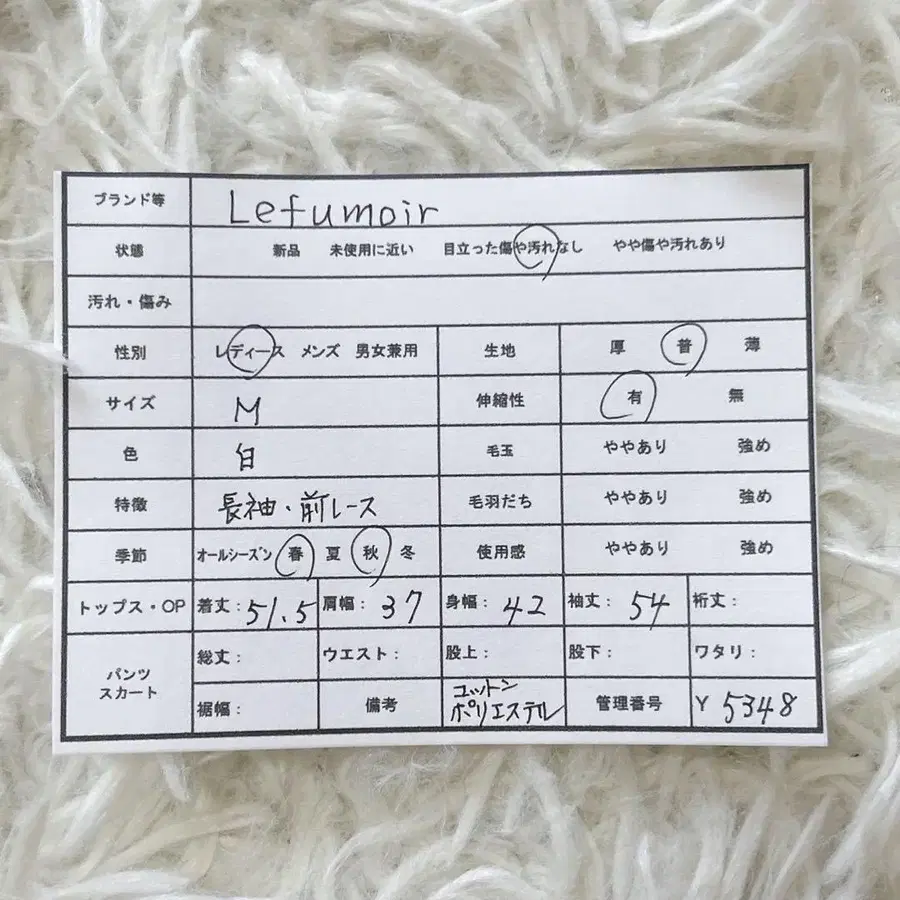 ブランド等 Lefumoir
状態 新品 未使用に近い 目立った傷や汚れなし やや傷や汚れあり
汚れ・傷み
性別 レディース メンズ 男女兼用 生地 厚 普 薄
サイズ M 伸縮性 有 無
色 白 毛玉 ややあり 強め
特徴 長袖・前レース 毛羽だち ややあり 強め
季節 オールシーズン 春 夏 秋 冬 使用感 ややあり 強め
トップス・OP 着丈:51.5 肩幅:37 身幅:42 袖丈:54 裄丈:
パンツ
スカート
総丈: ウエスト: 股上: 股下: ワタリ:
裾幅: 備考 コットン
ポリエステル
管理番号 Y 5348